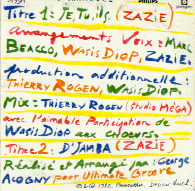 Titre 1: JE, TU, ILS. (ZAZIE)
Arrangements Voix = MARC
BEACCO, WASIS DIOP, ZAZIE.
production additionnelle:
THIERRY ROGEN, WASIS DIOP.
Mix = THIERRY ROGEN (Studio MEGA)
avec l'aimable Participation de
WASIS DIOP aux choeurs.
Titre 2: D'JAMBA (ZAZIE)
Réalisé et Arrangé par: George
ACOGNY pour Ultimate Groove
PHILIPS